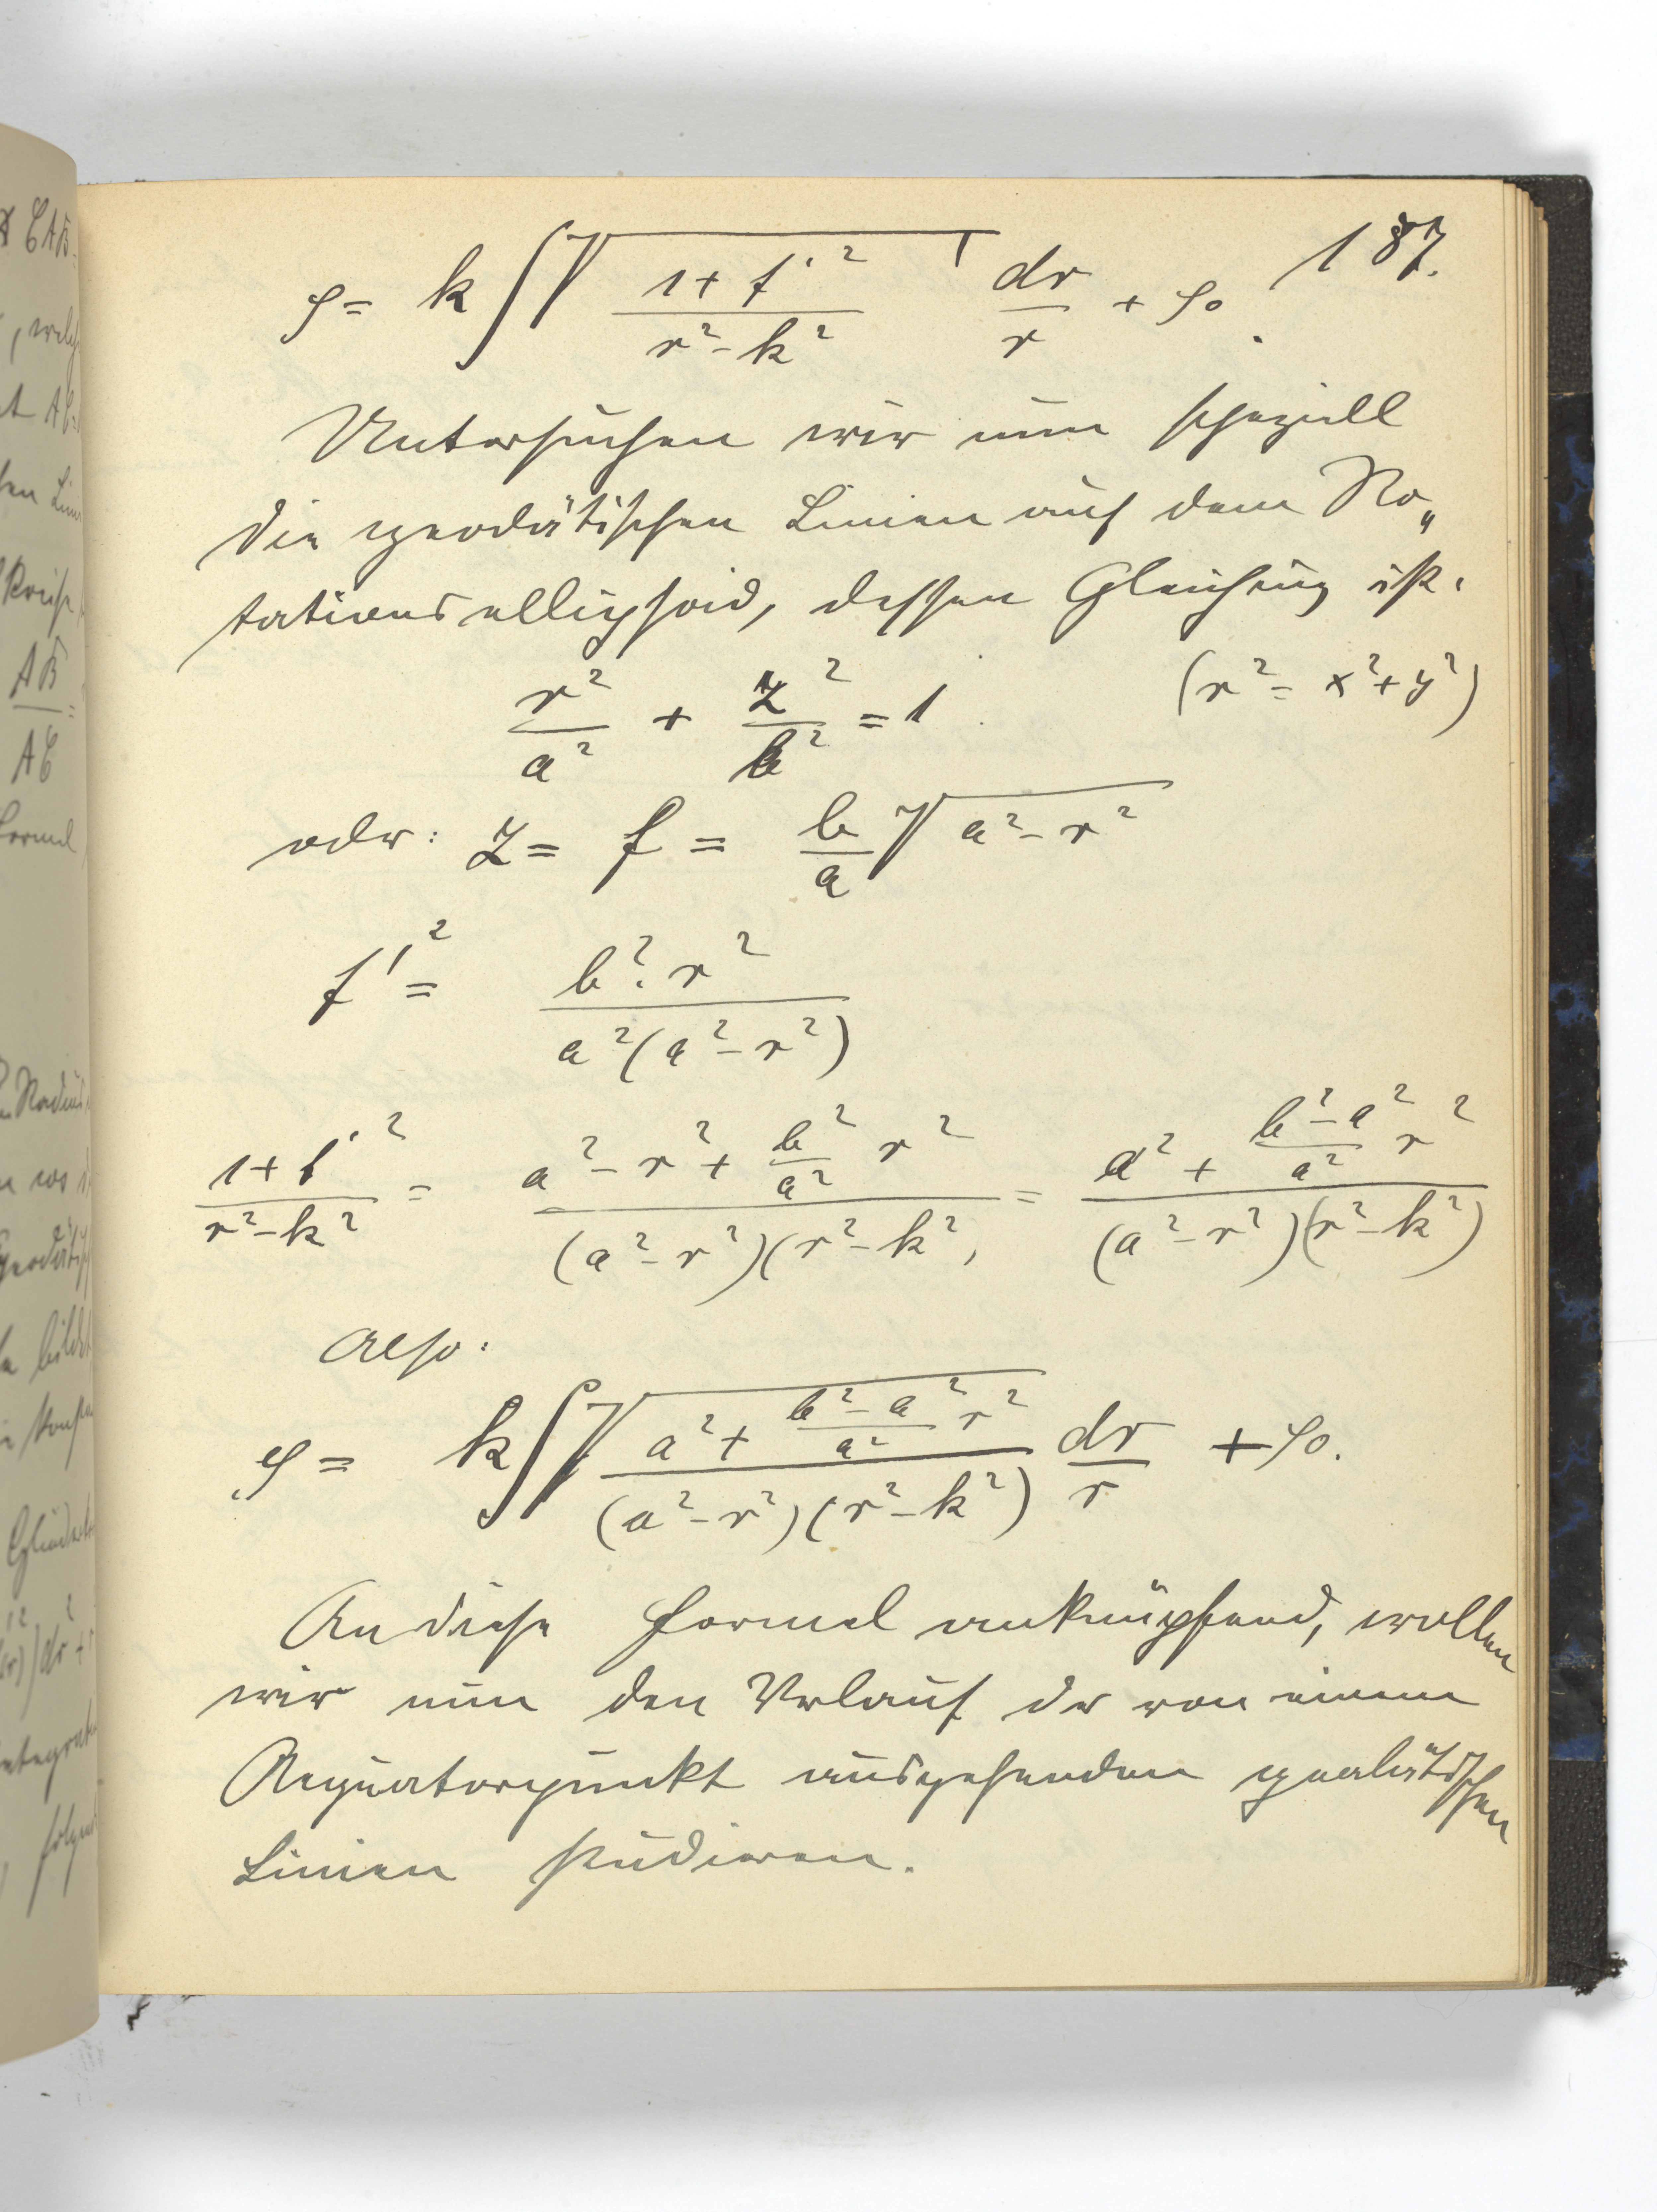 187.
φ = k ∫ √((1 + f'²)/(r² - k²)) dr/r + φ₀.
Untersuchen wir nun speziell
die geodätischen Linien auf dem Ro„
tationsellipsoid, dessen Gleichung ist:
r²/a² + z²/b² = 1. (r² = x² + y²)
oder: z = f = b/a √(a² - r²)
f'² = b². r² / a²(a² - r²)
(1 + f'²)/(r² - k²) = (a² - r² + b²/a² r²)/((a² - r²)(r² - k²)) = (a² + (b² - a²)/a² r²)/((a² - r²)(r² - k²))
Also:
φ = k ∫ √((a² + (b² - a²)/a² r²)/((a² - r²)(r² - k²))) dr/r + φ₀.
An diese Formel anknüpfend, wollen
wir nun den Verlauf der von einem
Aequatorpunkt ausgehenden geodätischen
Linien studieren.